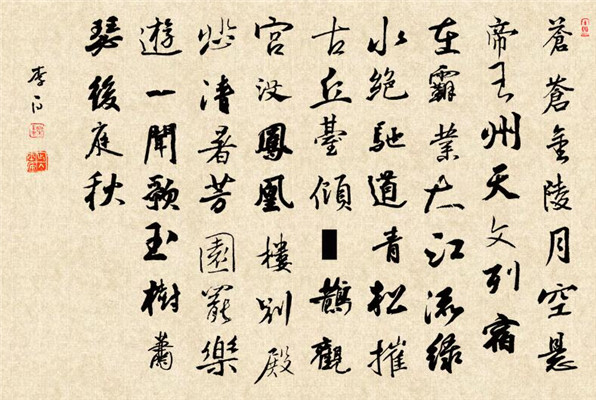 蒼蒼金陵月空懸
帝王州天文列宿
在霸業大江流綠
水絕馳道青松摧
古丘臺傾■鵲觀
宮沒鳳凰樓別殿
悲清暑芳園罷樂
遊一聞歌玉樹蕭
瑟後庭秋
李白